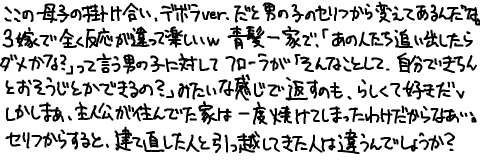 ここの母子の掛け合い、デボラver.だと男の子のセリフから変えてあるんだな。
3嫁で全く反応が違って楽しいw 青髪一家で、「あの人たち追い出したら
ダメかな?」って言う男の子に対してフローラが「そんなことして、自分できちん
とおそうじとかできるの?」みたいな感じで返すのも、らしくて好きだv
しかしまあ、主人公が住んでた家は一度焼けてしまったわけだからなあ…。
セリフからすると、建て直した人と引っ越してきた人は違うんでしょうか?